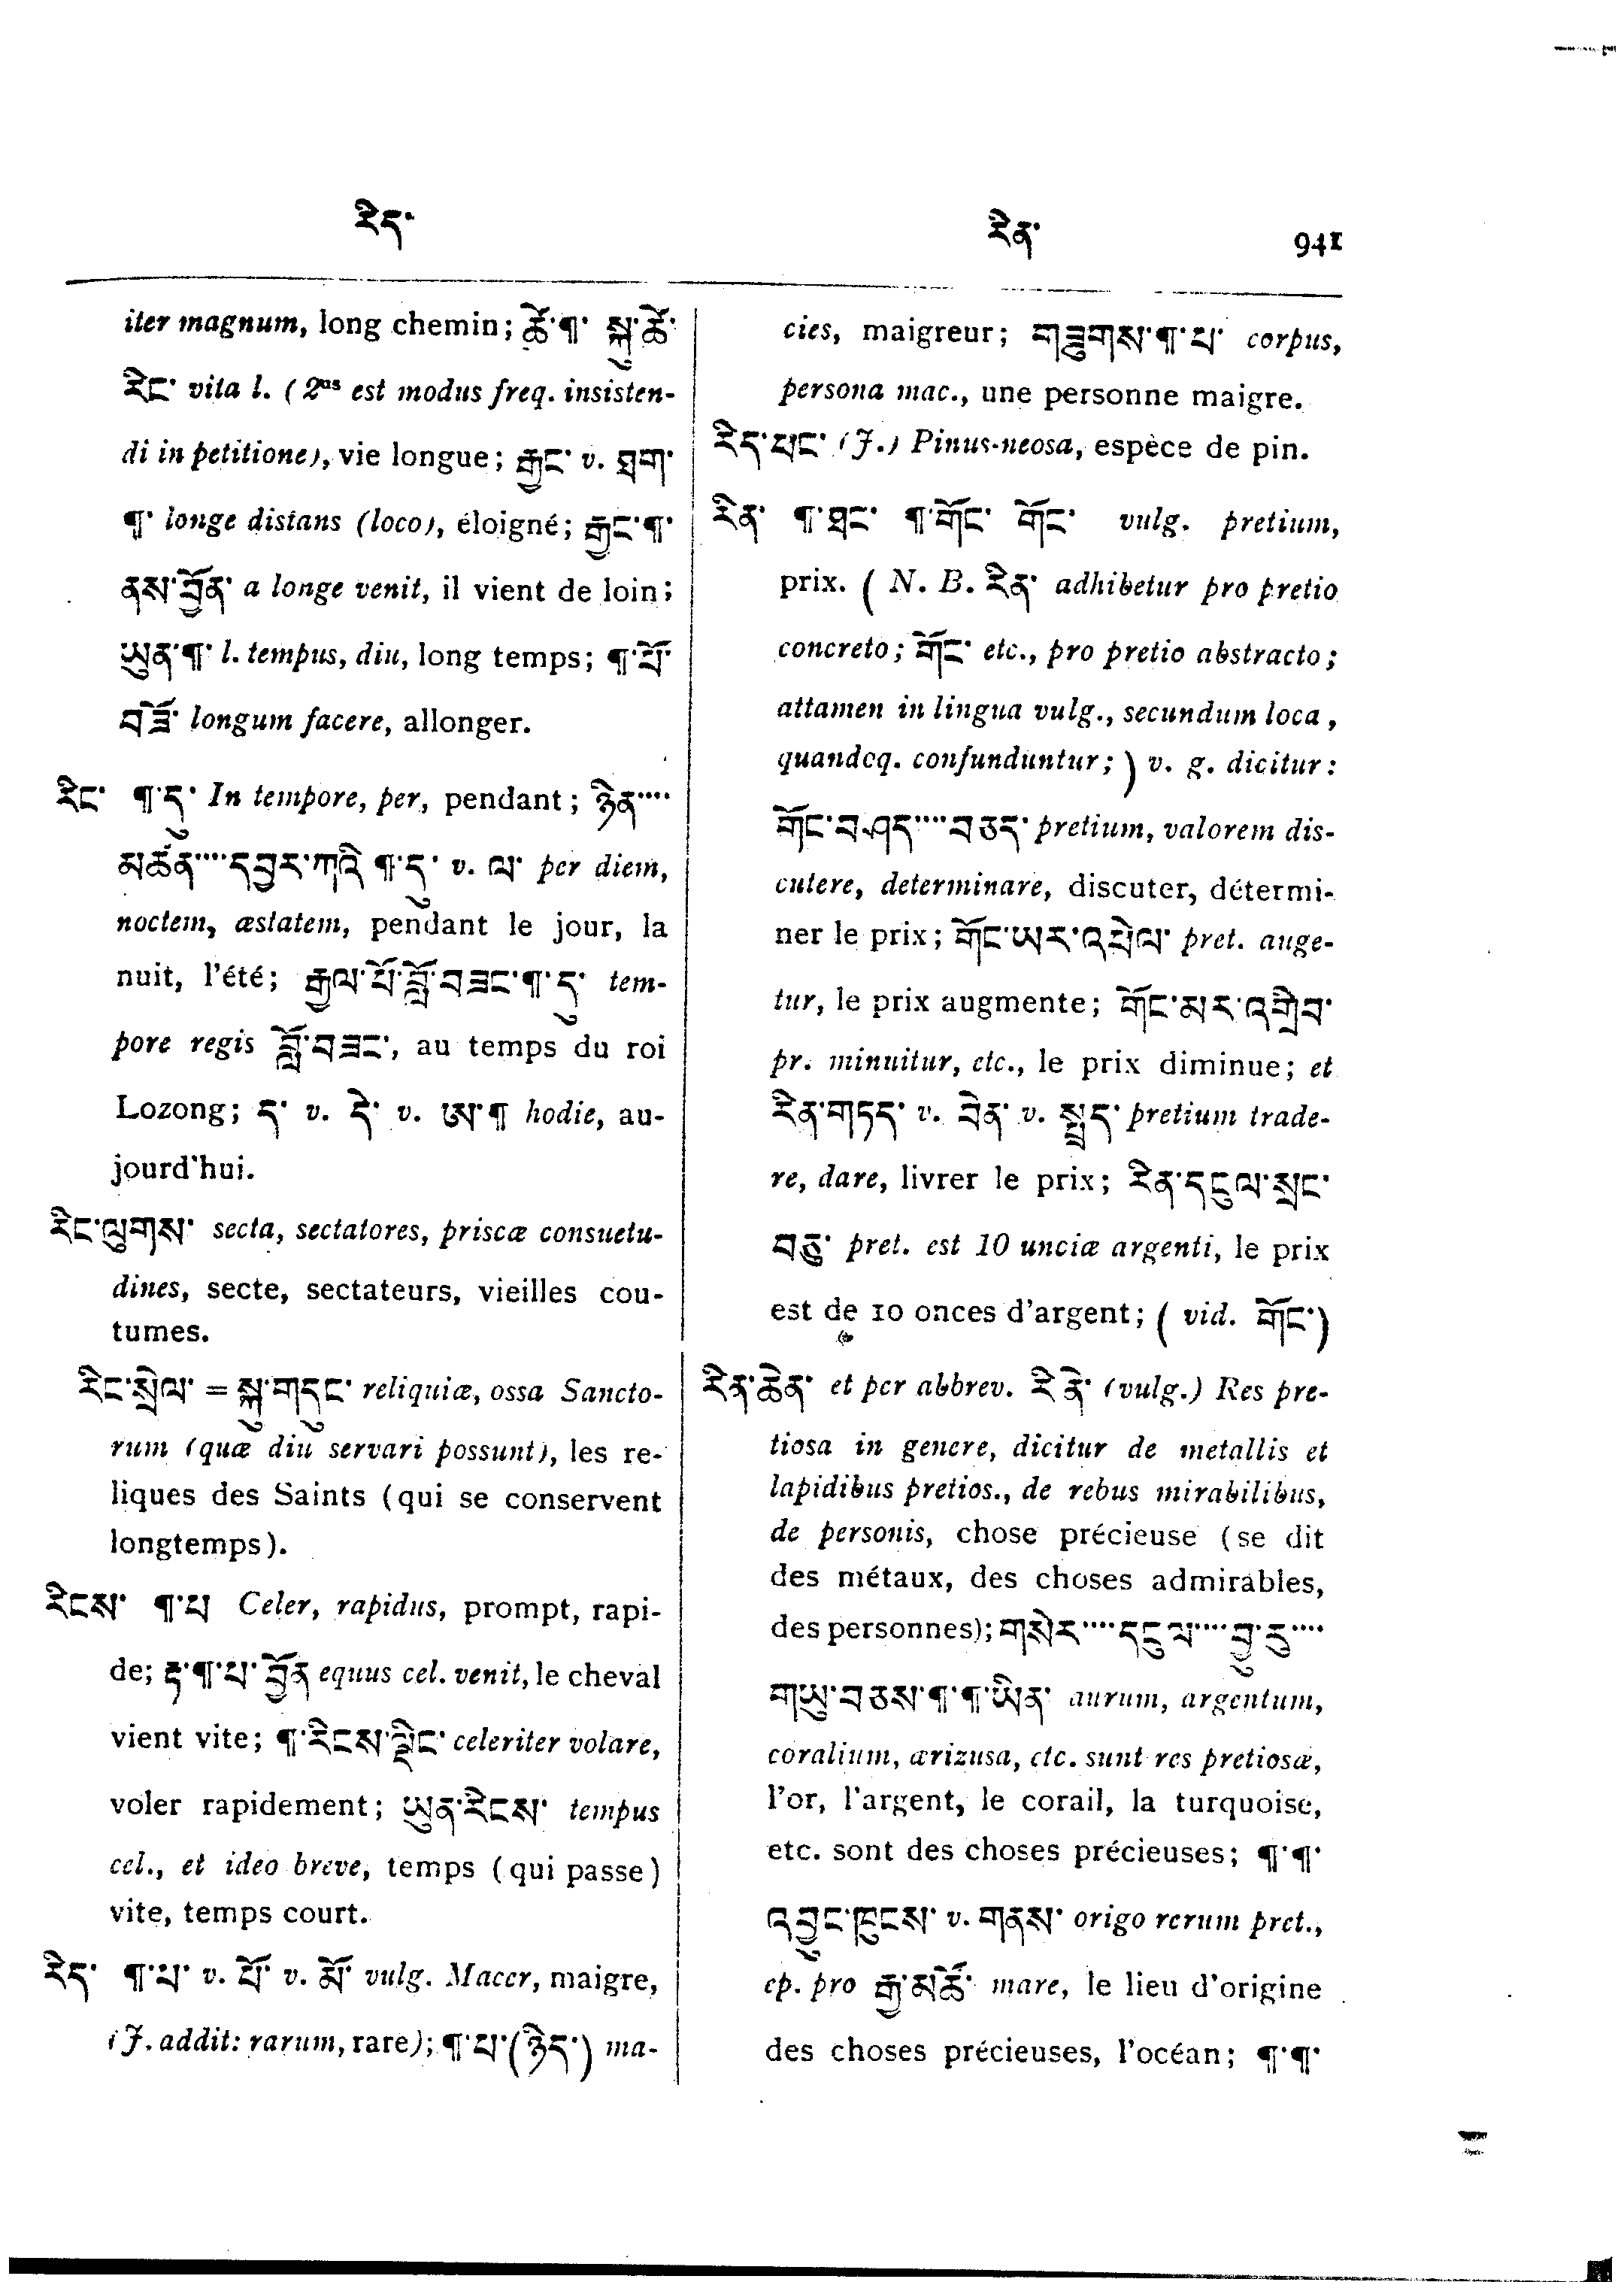 རིད་
རིན་ 941
iter magnum, long chemin; ཚེ་¶་ སྐུ་ཚེ་
རིང་ vita l. (2us est modus freq. insisten-
di in petitione), vie longue; རྒྱང་ v. ཐག་
¶་ longe distans (loco), éloigné; རྒྱང་¶་
ནས་བྱོན་ a longe venit, il vient de loin;
ཡུན་¶་ l. tempus, diu, long temps; ¶་པོ་
བཟོ་ longum facere, allonger.
རིང་ ¶་དུ་ In tempore, per, pendant; ཉིན་····
མཚན་····དབྱར་ཀའི་¶་དུ་ v. ལ་ per diem,
noctem, æstatem, pendant le jour, la
nuit, l'été; རྒྱལ་པོ་བློ་བཟང་¶་དུ་ tem-
pore regis བློ་བཟང་, au temps du roi
Lozong; ད་ v. དེ་ v. ཨ་¶ hodie, au-
jourd'hui.
རིང་ལུགས་ secta, sectatores, priscæ consuetu-
dines, secte, sectateurs, vieilles cou-
tumes.
རིང་སྲེལ་ = སྐུ་གདུང་ reliquiæ, ossa Sancto-
rum (quæ diu servari possunt), les re-
liques des Saints (qui se conservent
longtemps).
རིངས་ ¶་པ Celer, rapidus, prompt, rapi-
de; རྟ་¶་པ་བྱོན equus cel. venit, le cheval
vient vite; ¶་རིངས་ལྡིང་ celeriter volare,
voler rapidement; ཡུན་རིངས་ tempus
cel., et ideo breve, temps (qui passe)
vite, temps court.
རིད་ ¶་པ་ v. པོ་ v. མོ་ vulg. Macer, maigre,
(J. addit: rarum, rare); ¶་པ་(ཉིད་) ma-
cies, maigreur; གཟུགས་¶་པ་ corpus,
persona mac., une personne maigre.
རིད་པང་ (J.) Pinus-neosa, espèce de pin.
རིན་ ¶་ཐང་ ¶་གོང་ གོང་ vulg. pretium,
prix. (N. B. རིན་ adhibetur pro pretio
concreto; གོང་ etc., pro pretio abstracto;
attamen in lingua vulg., secundum loca,
quandoq. confunduntur;) v. g. dicitur:
གོང་བཤད་····བཅད་ pretium, valorem dis-
cutere, determinare, discuter, détermi-
ner le prix; གོང་ཡར་འཕེལ་ pret. auge-
tur, le prix augmente; གོང་མར་འགྲིབ་
pr. minuitur, etc., le prix diminue; et
རིན་གཏད་ v. བིན་ v. སྤྲད་ pretium trade-
re, dare, livrer le prix; རིན་དངུལ་སྲང་
བཅུ་ pret. est 10 unciæ argenti, le prix
est de 10 onces d'argent; (vid. གོང་)
རིན་ཆེན་ et per abbrev. རི་ནེ་ (vulg.) Res pre-
tiosa in genere, dicitur de metallis et
lapidibus pretios., de rebus mirabilibus,
de personis, chose précieuse (se dit
des métaux, des choses admirables,
des personnes); གསེར་····དངུལ་····བྱུ་རུ་····
གཡུ་བཅས་¶་¶་ཡིན་ aurum, argentum,
coralium, ærizusa, etc. sunt res pretiosæ,
l'or, l'argent, le corail, la turquoise,
etc. sont des choses précieuses; ¶་¶་
འབྱུང་ཁུངས་ v. གནས་ origo rerum pret.,
ep. pro རྒྱ་མཚོ་ mare, le lieu d'origine
des choses précieuses, l'océan; ¶་¶་